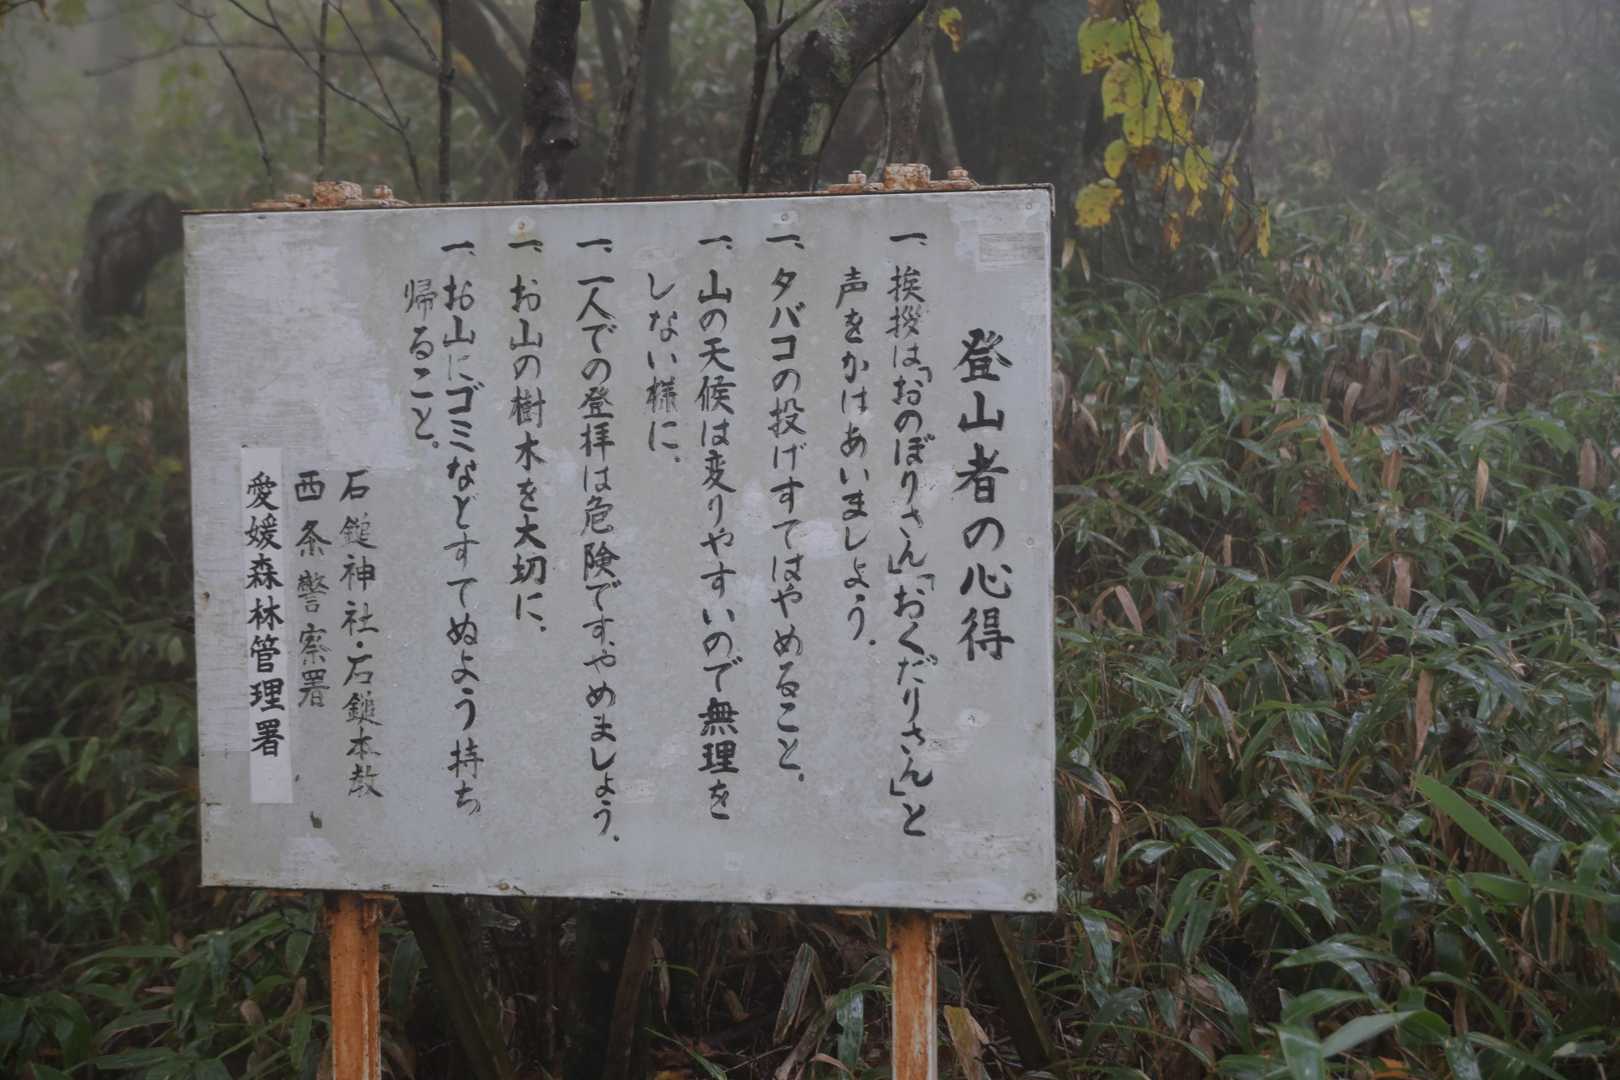 登山者の心得
一、挨拶は「おのぼりさん」「おくだりさん」と
声をかけあいましょう。
一、タバコの投げすてはやめること。
一、山の天候は変りやすいので無理を
しない様に。
一、一人での登拝は危険です、やめましょう。
一、お山の樹木を大切に。
一、お山にゴミなどすてぬよう持ち
帰ること。
石鎚神社・石鎚本教
西条警察署
愛媛森林管理署